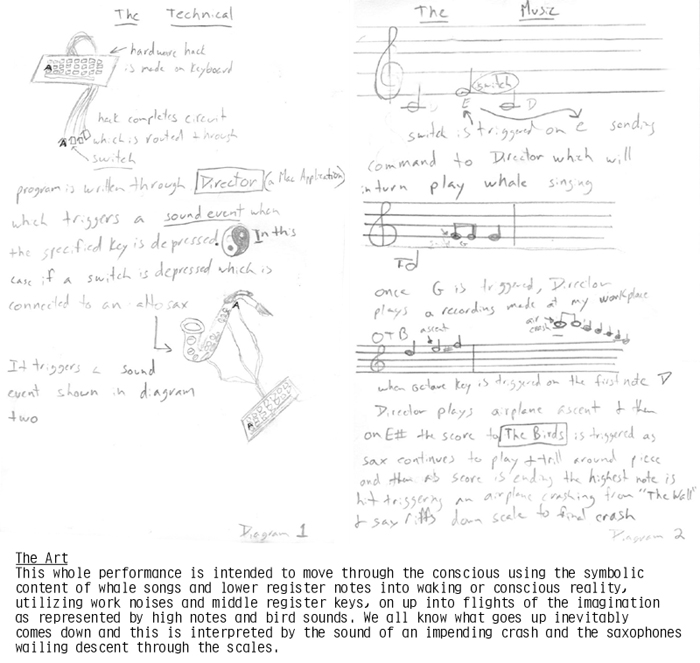 The Technical
hardware hack
is made on keyboard
A
hack completes circuit
A D
which is routed through
switch
program is written through Director (a Mac Application)
which triggers a sound event when
the specified key is depressed. In this
case if a switch is depressed which is
connected to an alto sax
A
It triggers a sound
event shown in diagram
two
A
Diagram 1
The Music
switch
E D
switch is triggered on e sending
command to Director which will
in turn play whale singing
G
once G is triggered, Director
plays a recording made at my workplace
air
crash
OTB ascent
when octave key is triggered on the first note D
Director plays airplane ascent & then
on E# the score to The Birds is triggered as
sax continues to play & trill around piece
and then as score is ending the highest note is
hit triggering an airplane crashing from "The Wall"
& sax riffs down scale to final crash
Diagram 2
The Art
This whole performance is intended to move through the conscious using the symbolic
content of whale songs and lower register notes into waking or conscious reality,
utilizing work noises and middle register keys, on up into flights of the imagination
as represented by high notes and bird sounds. We all know what goes up inevitably
comes down and this is interpreted by the sound of an impending crash and the saxophones
wailing descent through the scales.